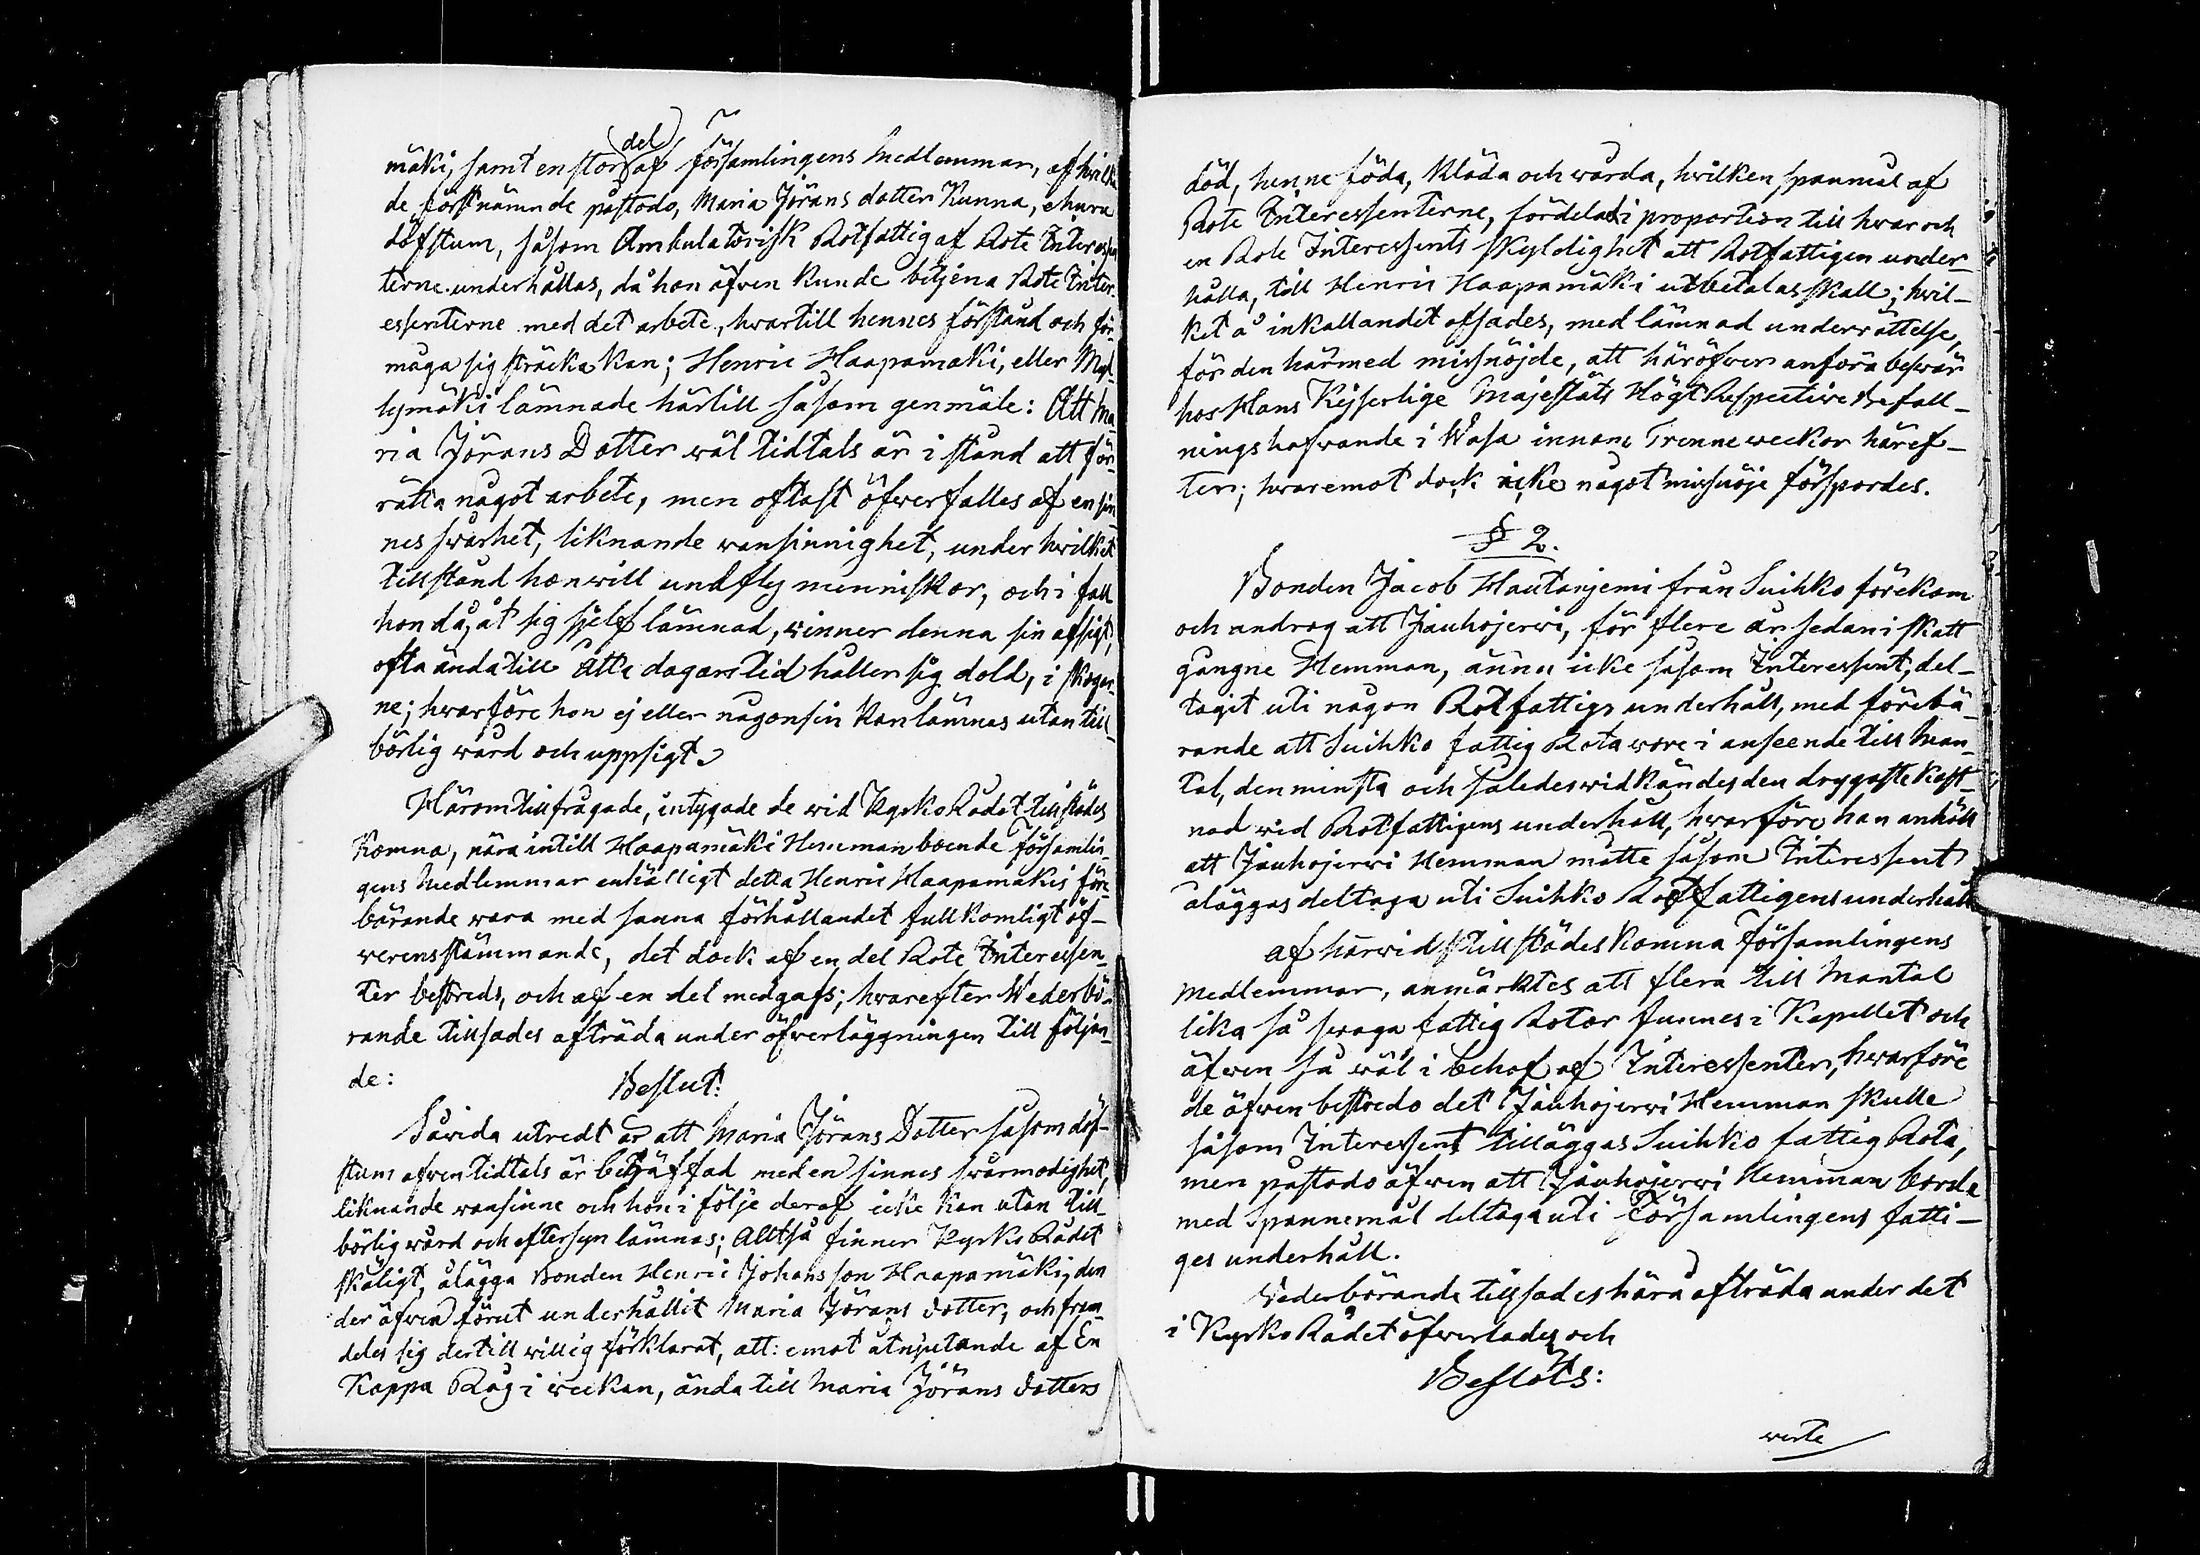 mäki, samt en stor del af församlingens medlemmar, af hvilka
de förstnämnde påstodo, Maria Jörans dotter kunna, ehuru
döfstum, såsom Ambulatorisk Rotfattig af Rote Interessen
terne underhållas, då hon äfven kunde betjena Rote Inter-
essenterne med det arbete, hvartill hennes förstånd och för-
måga sig sträcka kan; Henric Haapamäki, eller Myl-
lymäki lämnade härtill såsom genmäle: Att Ma-
ria Jörans Dotter wäl tidtals är i stånd att för-
rätta något arbete, men oftast öfwerfalles af en sin-
nes swårhet, liknande wansinnighet, under hwilket
tillstånd hon will undfly menniskor, och i fall
hon då, åt sig sjelf lämnad, winner denna sin afsigt,
ofta ända till åtta dagars tid håller sig dold, i skogar-
ne; hwarföre hon ej eller någonsin kan lämnas utan till-
börlig wård och uppsigt.
Härom tillfrågade, intygade de wid KyrkoRådet tillstädes
komna, nära intill Haapamäki Hemman boende Församlin-
gens medlemmar enhälligt detta Henric Haapamäkis före
bärande wara med sanna förhållandet fullkomligt öf-
werensstämmande, det dock af en del Rote Interessen-
ter bestreds, och af en del medgafs; hwarefter Wederbö-
rande tillsades afträda under öfwerläggningen till följan-
de:
Beslut:
Såvida utredt är att Maria Jörans Dotter såsom döf-
stum äfwen tidtals är behäftad med en sinnes swårmodighet,
liknande wansinne och hon i följe deraf icke kan utan till-
börlig wård och eftersyn lämnas; Alltså finner KyrkoRådet
skäligt, ålägga Bonden Henric Johansson Haapamäki, den
der äfwen förut underhållit Maria Jörans dotter, och frem-
deles sig dertill willig förklarat, att: emot åtnjutande af En
Kappa Råg i weckan, ända till Maria Jörans dotters
död, henne föda, kläda och wårda, hvilken spanmål af
Rote Interessenterne, fördelad i proportion till hvar och
en Rote Interessents skyldighet att Rotfattigen under-
hålla, till Henric Haapamäki utbetalas skall; hvil-
ket å inkallandet afsades, med lämnad underrättelse,
för den härmed missnöjde, att häröfwer anföra beswär
hos Hans Kejserlige Majestäts Högt Respective Befall-
ningshafwande i Wasa innom Trenne weckor häref-
ter; hvaremot dock icke något missnöje förspordes.
§ 2.
Bonden Jacob Hautanjemi från Suihko förekom
och androg att Jauhojerwi, för flere år sedan i skatt
gångne Hemman, ännu icke såsom Interessent, del-
tagit uti någon Rotfattigs underhåll, med förebä-
rande att Suihko fattig Rota wore i anseende till Man-
tal, den minsta och således widkändes den drygaste kost-
nad wid Rotfattigens underhåll, hwarföre han anhöll
att Jauhojerwi Hemman måtte såsom Interessent
åläggas deltaga uti Suihko Rotfattigens underhåll
af härwid tillstädes komna Församlingens
medlemmar, anmärktes att flera till Mantal
lika så swaga fattig Rotor funnes i Kapellet och
äfwen så wäl i behof af Interessenter, hwarföre
de äfwen bestredo det Jauhojerwi Hemman skulle
såsom Interessent tilläggas Suihko fattig Rota,
men påstodo äfwen att Jauhojerwi Hemman borde
med Spannemål deltaga uti Församlingens fatti-
ges underhåll.
Wederbörande tillsades härå afträda under det
i KyrkoRådet öfwerlades och
Beslöts:
verte